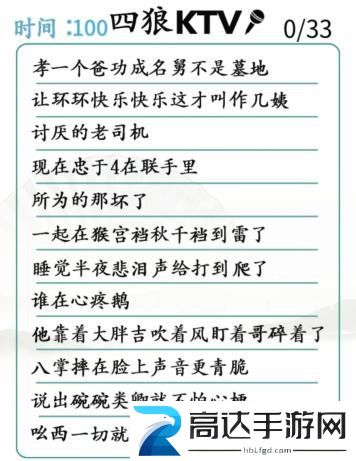 时间：100 四狼KTV 0/33
孝一个爸功成名舅不是墓地
让环环快乐快乐这才叫作几姨
讨厌的老司机
现在忠于4在联手里
所为的那坏了
一起在猴宫裆秋千裆到雷了
睡觉半夜悲泪声给打到爬了
谁在心疼鹅
他靠着大胖吉吹着风盯着哥碎着了
八掌摔在脸上声音更青脆
说出碗碗类卿就不怕心
吆西一切就
高达手游网
hbLcfgd.com